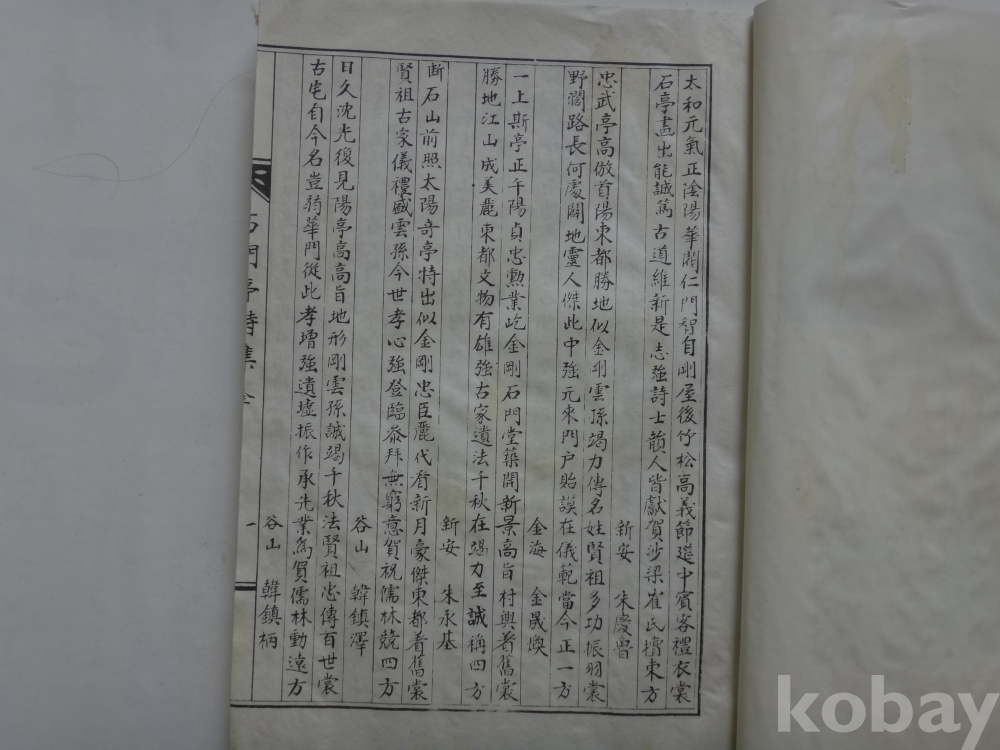 太和元氣正陰陽華闢仁門智自剛屋後竹松高義節筵中賓客禮衣裳
石亭畵出能誠篤古道維新是志強詩士韻人皆獻賀沙梁崔氏擅東方
新安 朱慶曾
忠武亭高倣首陽東都勝地似金剛雲孫竭力傳名姓賢祖多功振羽裳
野濶路長何處闢地靈人傑此中強元來門户貽謨在儀範當今正一方
金海 金晟煥
一上斯亭正午陽貞忠勲業屹金剛石門堂築開新景高旨村興著舊裳
勝地江山成美麗東都文物有雄強古家遺法千秋在竭力至誠稱四方
新安 朱永基
断石山前照太陽奇亭特出似金剛忠臣麗代看新月豪傑東都着舊裳
賢祖古家儀禮盛雲孫今世孝心強登臨叅拜無窮意賀祝儒林競四方
谷山 韓鎮澤
日久沈光復見陽亭高高旨地形剛雲孫誠竭千秋法賢祖忠傳百世裳
古宅自今名豈弱華門從此孝增強遺墟振作承先業為賀儒林動遠方
谷山 韓鎮柄
石門亭詩集全
一
kobay